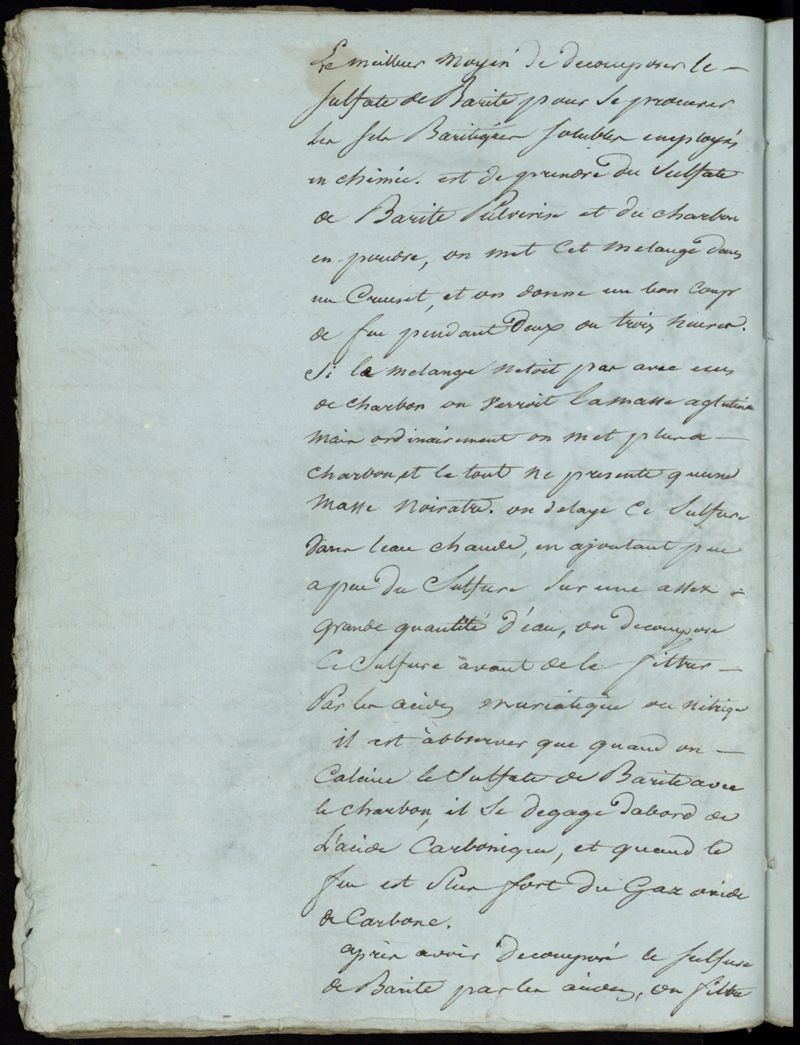 Le meilleur moyen de decomposer le –
sulfate de Barite pour se procurer
les sels Baritiques solubles employés
en chimie. est de prendre du Sulfate
de Barite Pulverisé et du charbon
en poudre, on met cet melange dans
un Creuset, et on donne un bon coup
de feu pendant Deux ou trois heures.
Si le melange netoit pas avec
de charbon on verroit la masse aglutiné
mais ordinairement on met plus de –
charbon et le tout ne presente qu'une
masse noiratre. on delaye ce Sulfure
Dans leau chaude, en ajoutant peu
a peu du Sulfure sur une assez –
grande quantité d'eau, on decompose
Ce Sulfure avant de le filtrer –
Par les acides muriatique ou nitrique
il est a observer que quand on –
Calcine le Sulfate de Barite avec
le charbon, il se degage dabord de
L'acide Carbonique, et quand le
feu est Plus fort du Gaz oxide
de Carbone.
après avoir Decomposé le sulfure
de Barite par les acides, on filtre